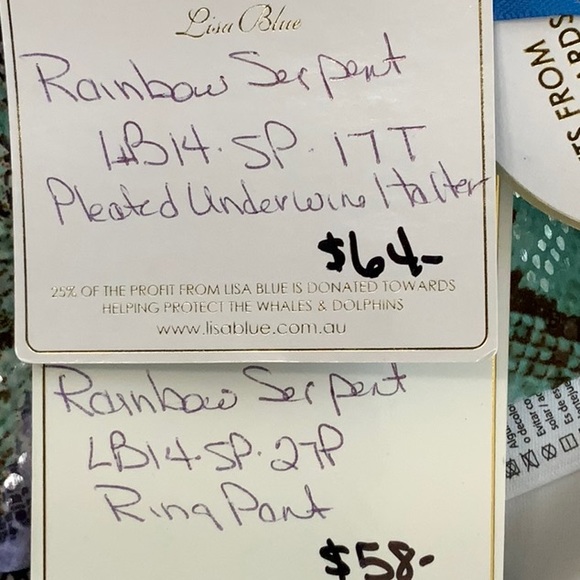 Lisa Blue
Rainbow Serpent
LB14.SP.17T
Pleated Underwire Halter
$64-
25% OF THE PROFIT FROM LISA BLUE IS DONATED TOWARDS
HELPING PROTECT THE WHALES & DOLPHINS
www.lisablue.com.au
Rainbow Serpent
LB14.SP.27P
Ring Pant
$58-
FROM
Evitar
solar / a
Es de es